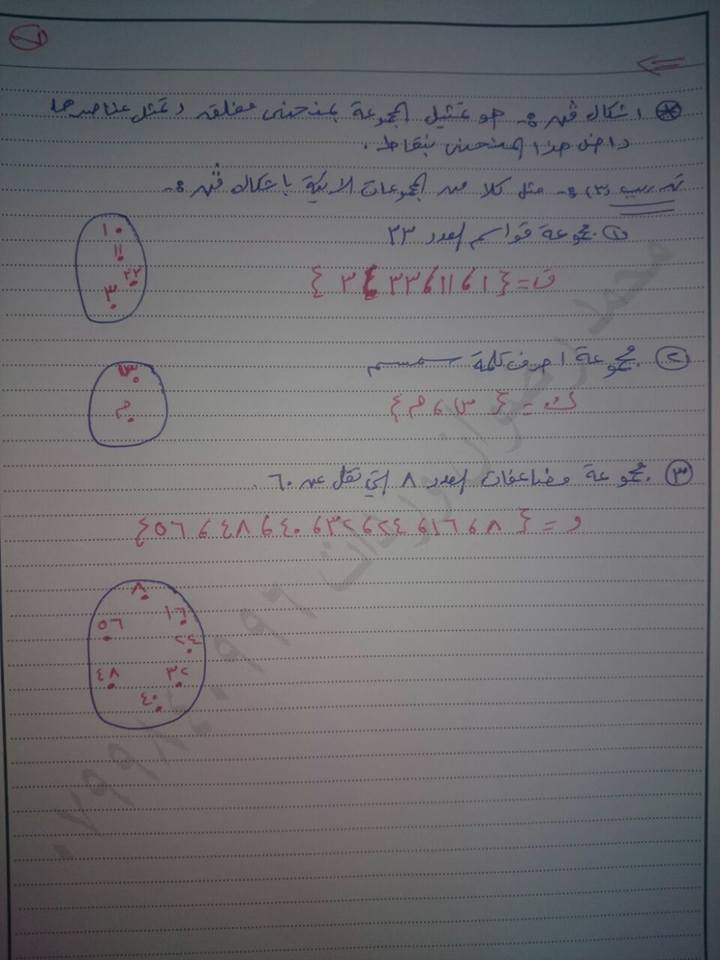 * اشكال ڤن :- هو تمثيل المجموعة بمنحنى مغلق وتمثل عناصرها
داخل هذا المنحنى بنقاط .
تدريب (٣) :- مثل كلا من المجموعات الاتية باشكال ڤن :-
١ . مجموعة قواسم العدد ٣٣
ق = { ١ ، ١١ ، ٣٣ ، ٣ }
١
١١
٣٣
٣
٢ . مجموعة احرف كلمة سمسم
ك = { س ، م }
س
م
٣ . مجموعة مضاعفات العدد ٨ التي تقل عن ٦٠ .
و = { ٨ ، ١٦ ، ٢٤ ، ٣٢ ، ٤٠ ، ٤٨ ، ٥٦ }
٨
١٦
٥٦
٢٤
٣٢
٤٨
٤٠
محمد رضوان وردات